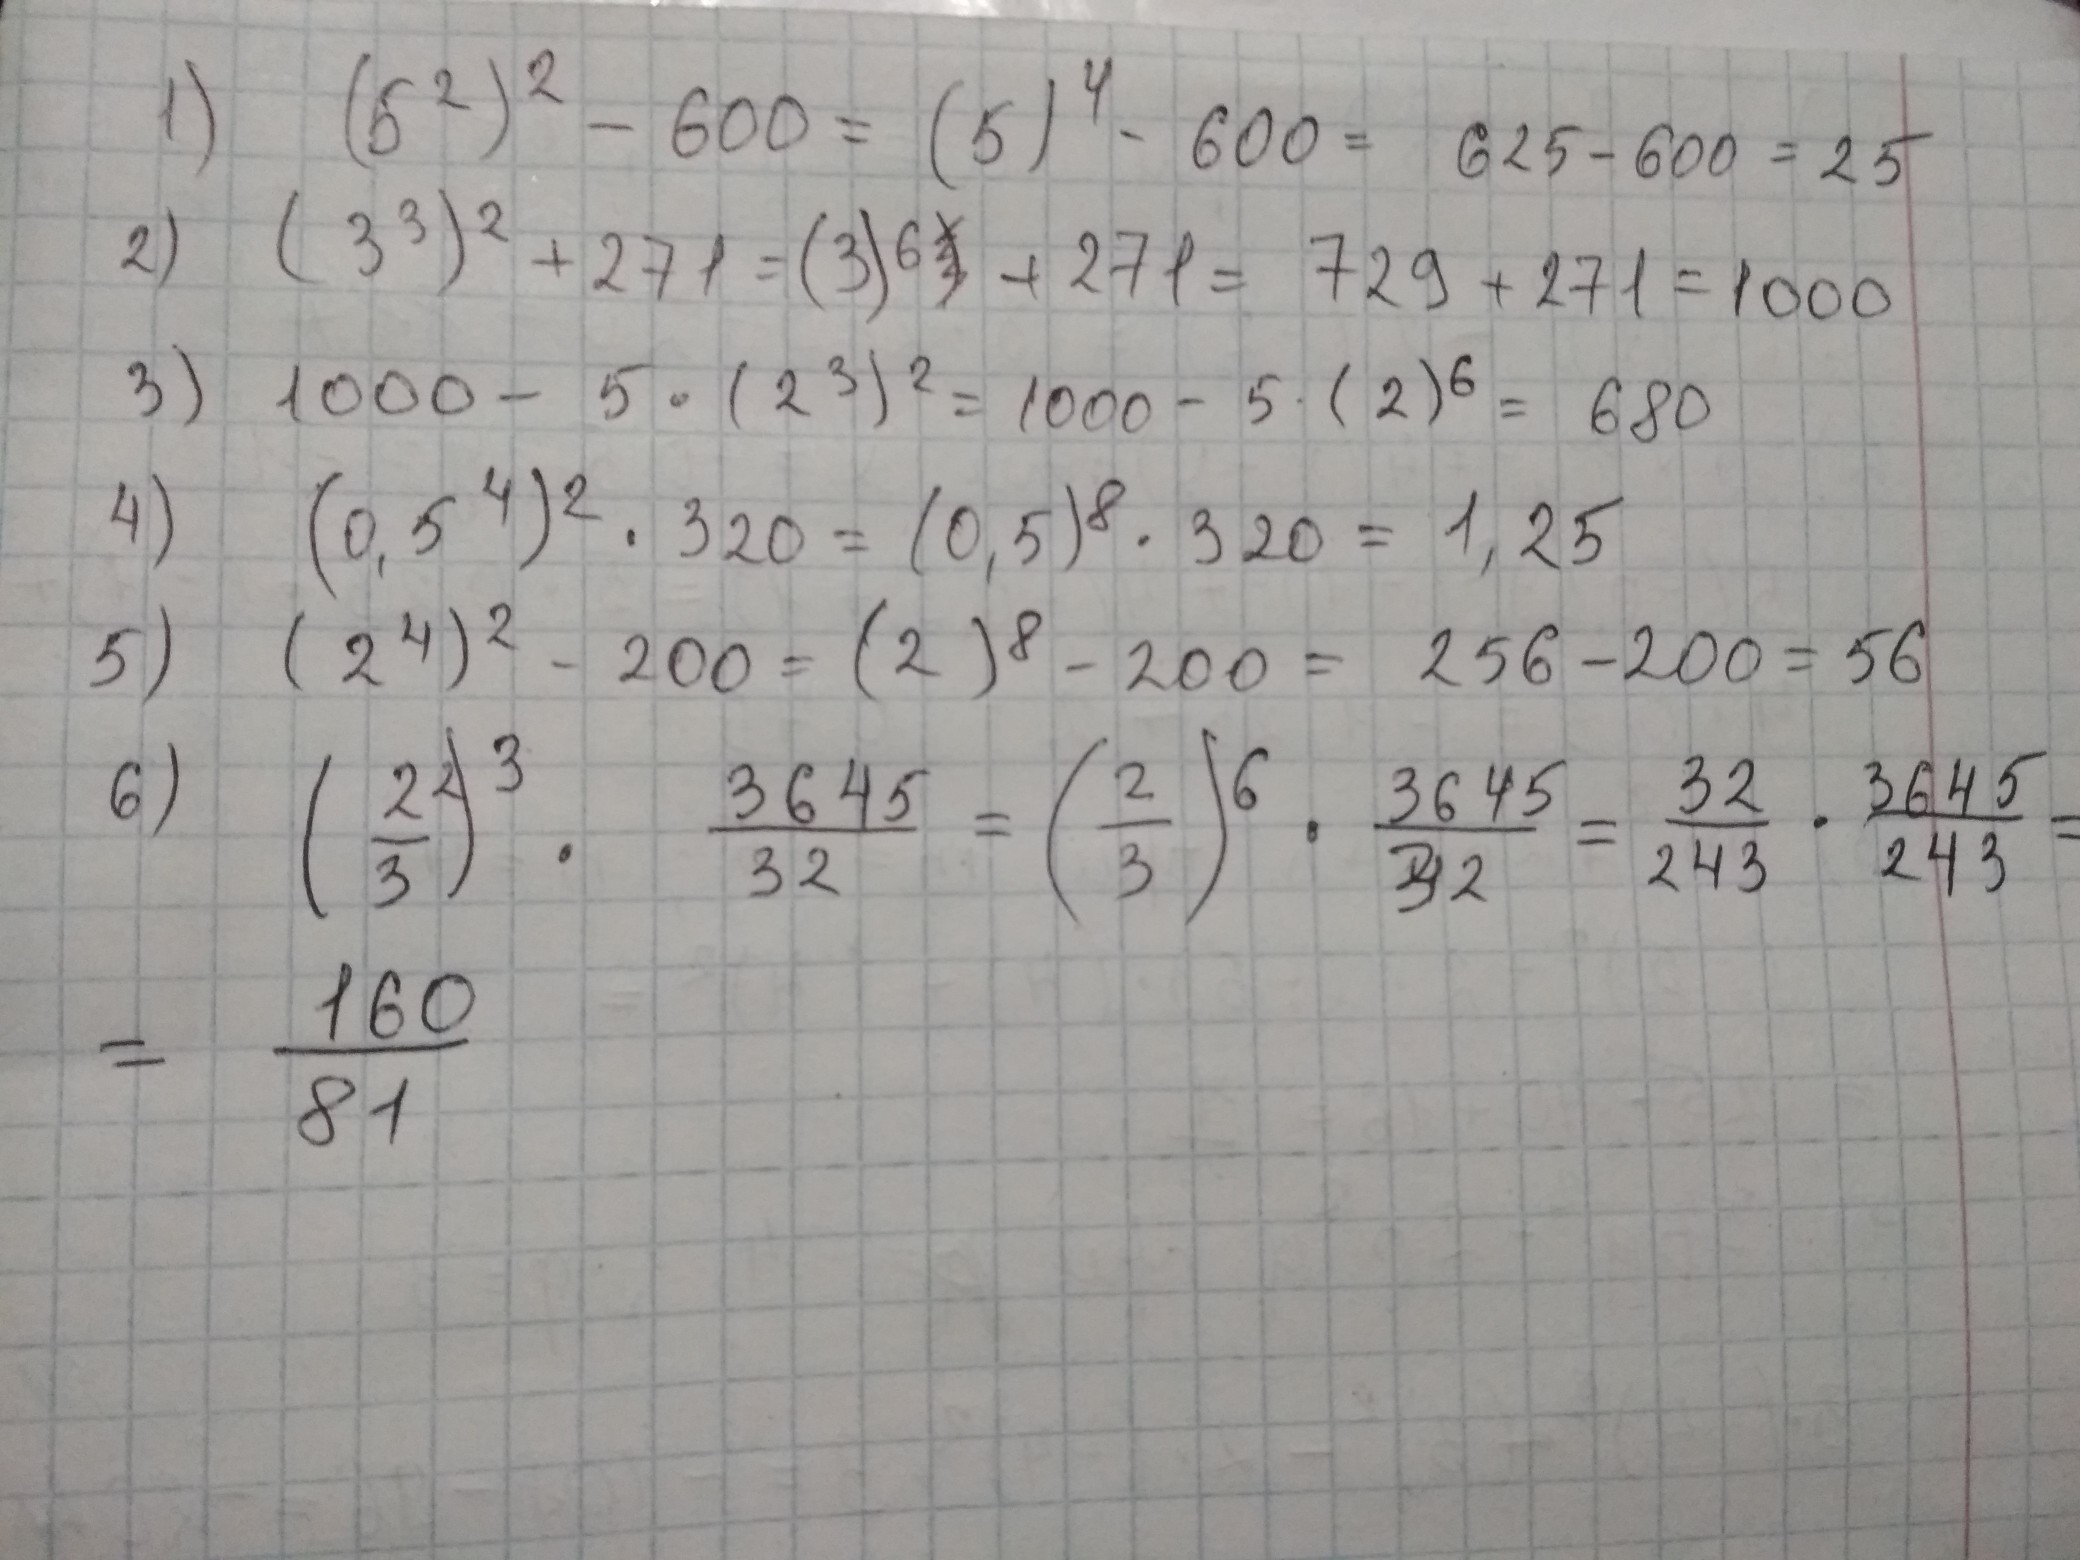 1) (5²)² - 600 = (5)⁴ - 600 = 625 - 600 = 25
2) (3³)² + 271 = (3)⁶ + 271 = 729 + 271 = 1000
3) 1000 - 5 · (2³)² = 1000 - 5 · (2)⁶ = 680
4) (0,5⁴)² · 320 = (0,5)⁸ · 320 = 1,25
5) (2⁴)² - 200 = (2)⁸ - 200 = 256 - 200 = 56
6) (2²/3)³ · 3645/32 = (2/3)⁶ · 3645/32 = 32/243 · 3645/243 =
= 160/81